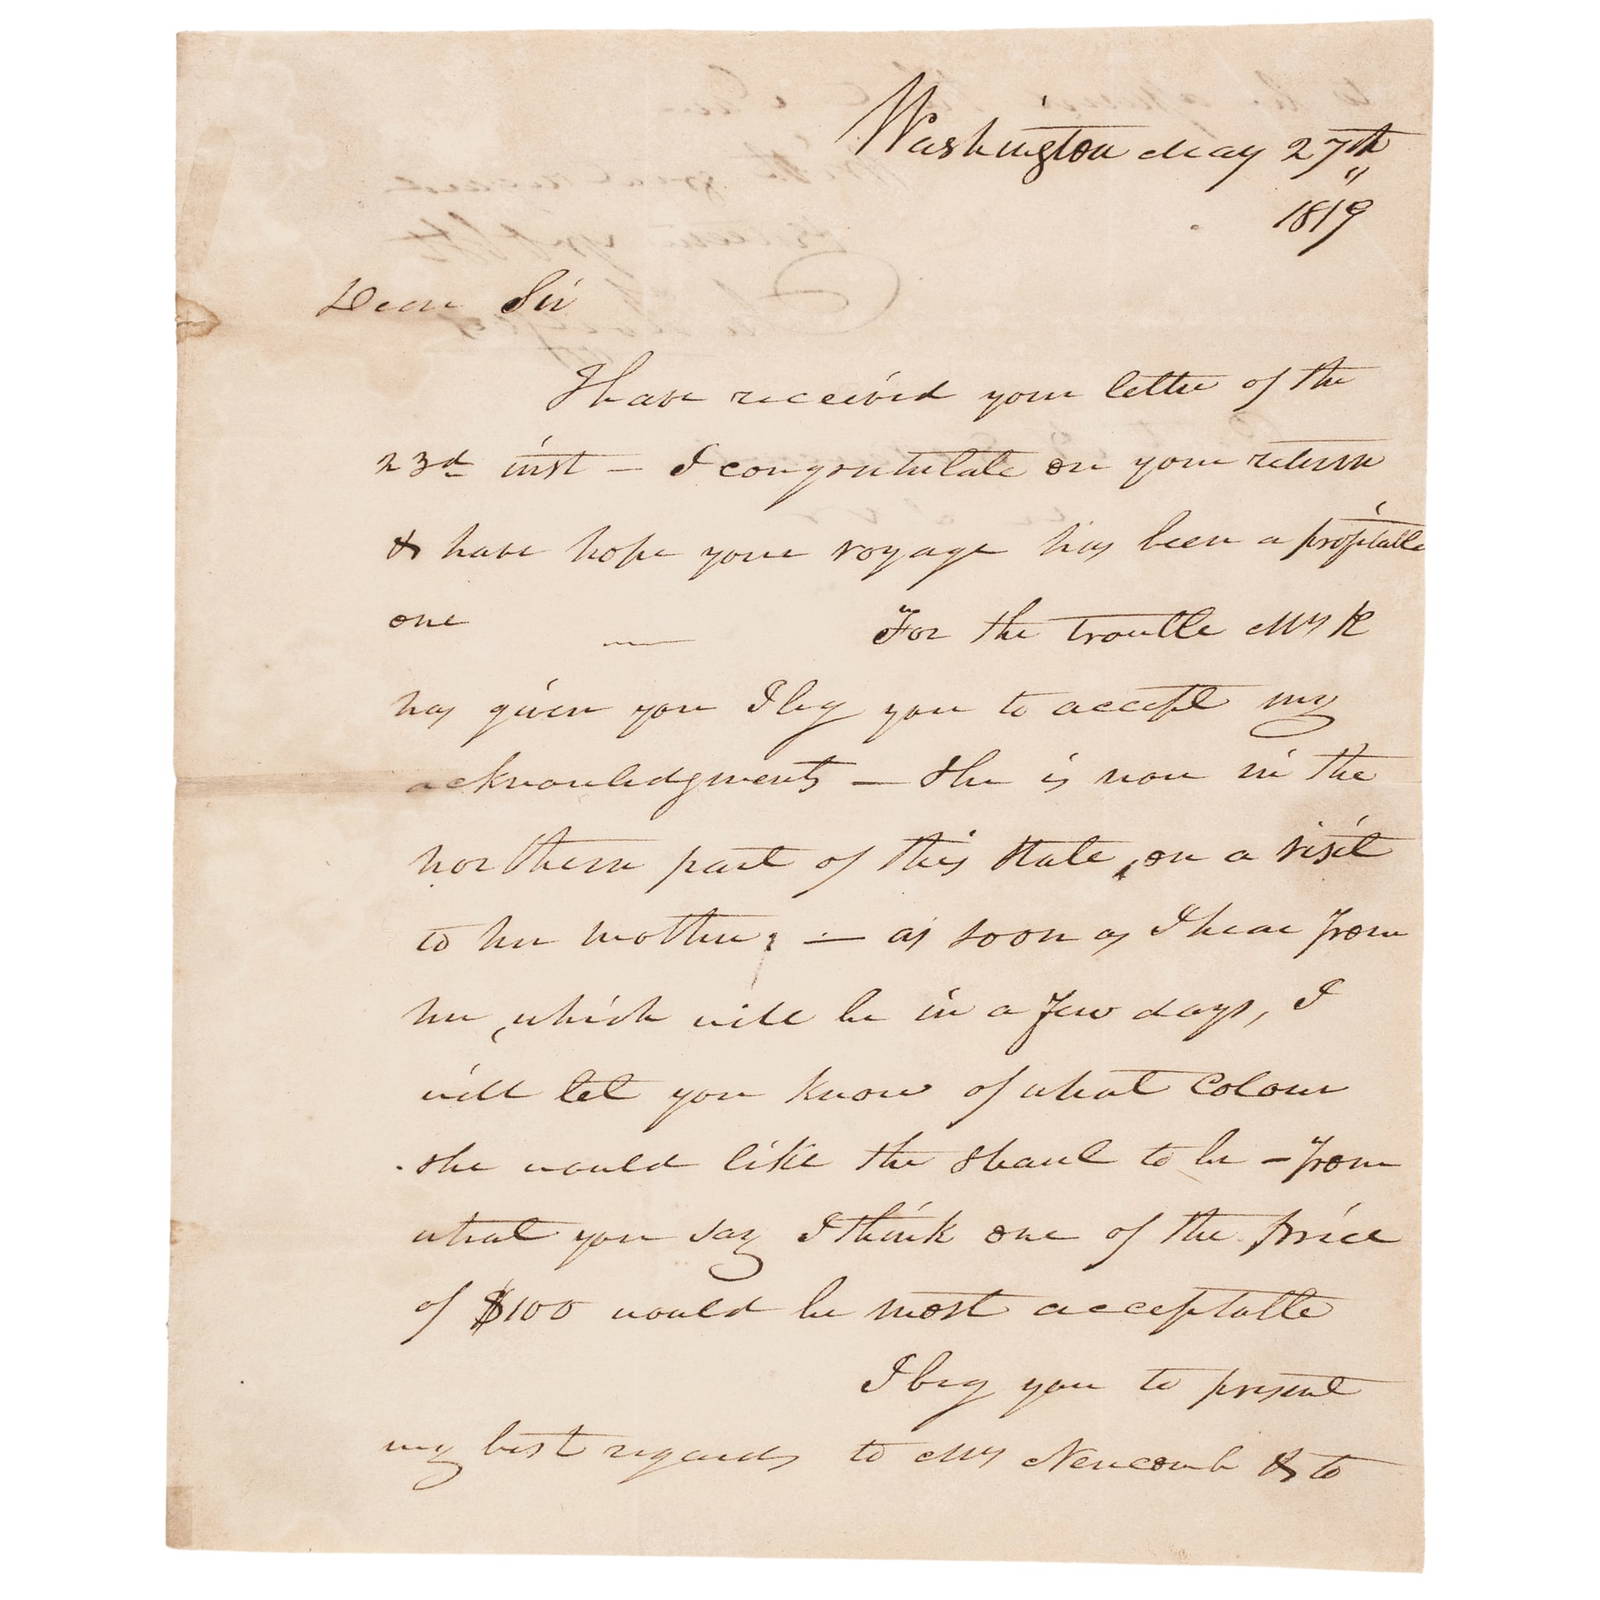 Washington May 27th
1819
Dear Sir
I have received your letter of the
23d inst – I congratulate on your return
& have hope your voyage has been a profitable
one — For the trouble Mrs K
has given you I beg you to accept my
acknowledgments – She is now in the
northern part of this State, on a visit
to her mother; – as soon as I hear from
her, which will be in a few days, I
will let you know of what Colour
she would like the Shaul to be – from
what you say I think one of the price
of $100 would be most acceptable
I beg you to present
my best regards to Mrs Newcomb & to